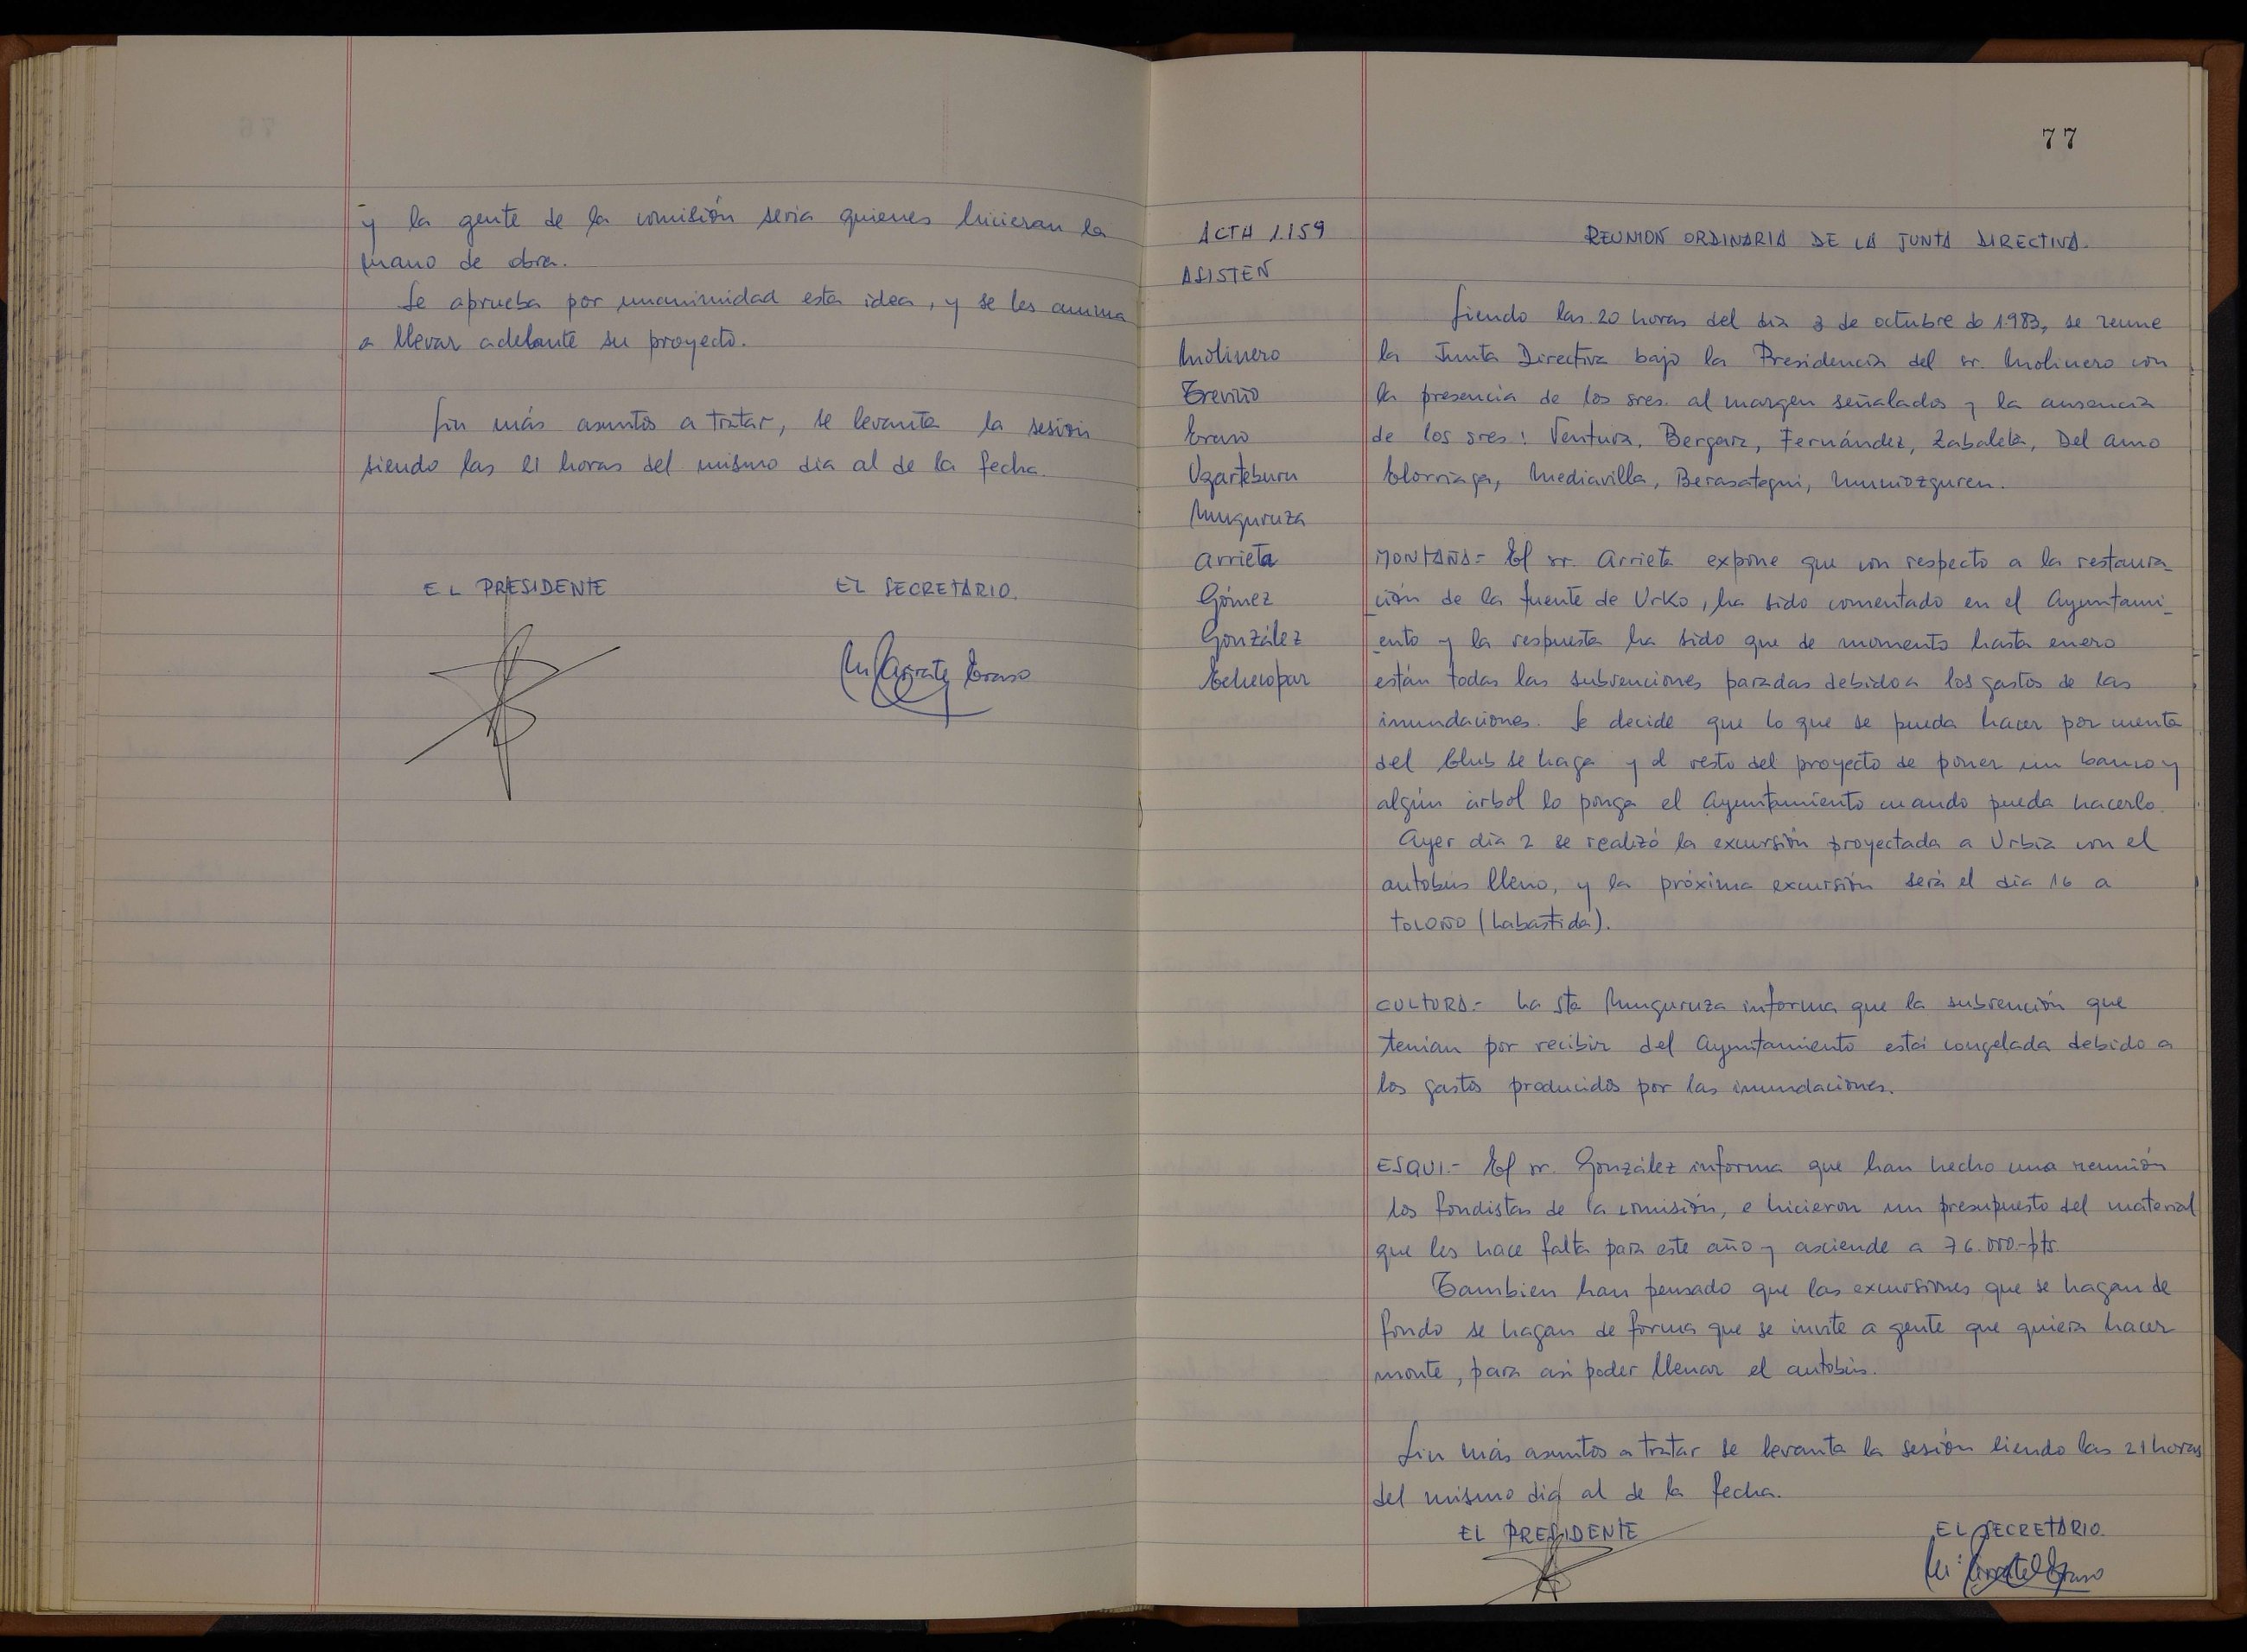 y la gente de la comisión seria quienes hicieran la
mano de obra.
Se aprueba por unanimidad esta idea, y se les anima
a llevar adelante su proyecto.
Sin más asuntos a tratar, se levanta la sesión
siendo las 21 horas del mismo dia al de la fecha.
EL PRESIDENTE
EL SECRETARIO.
Mª Arrate Eraso
77
ACTA 1.159
ASISTEN
Molinero
Treviño
Eraso
Ugarteburu
Muguruza
Arrieta
Gómez
González
Echeopar
REUNION ORDINARIA DE LA JUNTA DIRECTIVA.
Siendo las 20 horas del dia 3 de octubre de 1.983, se reune
la Junta Directiva bajo la Presidencia del sr. Molinero con
la presencia de los sres. al margen señalados y la ausencia
de los sres: Ventura, Bergara, Fernández, Zabaleta, Del Amo
Elorriaga, Mediavilla, Berasategui, Muniozguren.
MONTAÑA= El sr. Arrieta expone que con respecto a la restaura_
_ción de la fuente de Urko, ha sido comentado en el Ayuntami_
_ento y la respuesta ha sido que de momento hasta enero
están todas las subvenciones paradas debido a los gastos de las
inundaciones. Se decide que lo que se pueda hacer por cuenta
del Club se haga y el resto del proyecto de poner un banco y
algún árbol lo ponga el Ayuntamiento cuando pueda hacerlo.
Ayer dia 2 se realizó la excursión proyectada a Urbia con el
autobus lleno, y la próxima excursión será el dia 16 a
TOLOÑO (Labastida).
CULTURA.- La sta Muguruza informa que la subvención que
tenian por recibir del Ayuntamiento está congelada debido a
los gastos producidos por las inundaciones.
ESQUI.- El sr. González informa que han hecho una reunión
los fondistas de la comisión, e hicieron un presupuesto del material
que les hace falta para este año y asciende a 76.000.-pts.
Tambien han pensado que las excursiones que se hagan de
fondo se hagan de forma que se invite a gente que quiera hacer
monte, para asi poder llenar el autobús.
Sin más asuntos a tratar se levanta la sesión siendo las 21 horas
del mismo dia al de la fecha.
EL PRESIDENTE
EL SECRETARIO.
Mª Arrate Eraso